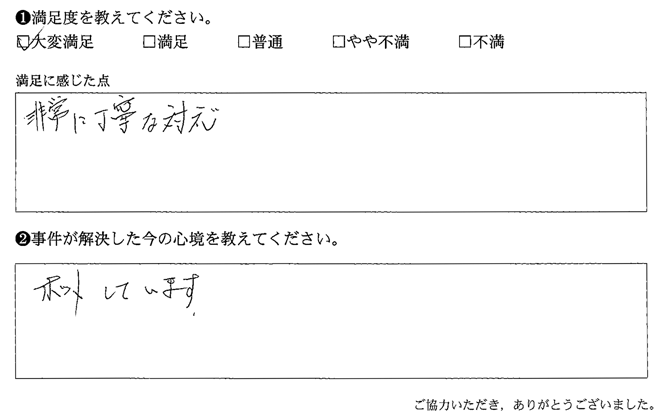 ❶満足度を教えてください。
☑大変満足 □満足 □普通 □やや不満 □不満
満足に感じた点
非常に丁寧な対応
❷事件が解決した今の心境を教えてください。
ホットしています.
ご協力いただき，ありがとうございました。